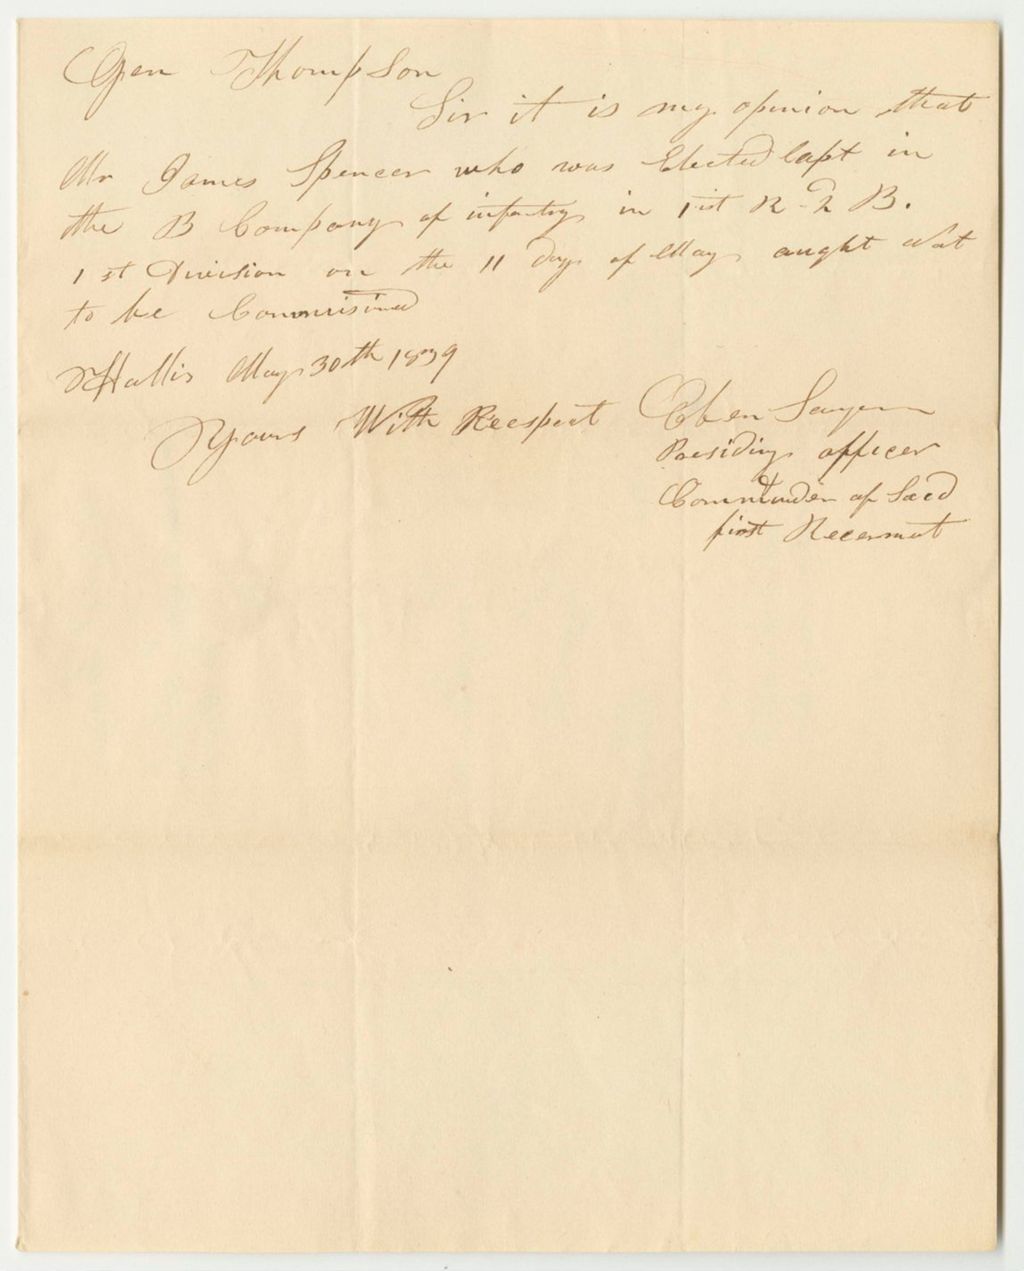 Gen Thompson
Sir it is my opinion that
Mr James Spencer who was Elected Capt in
the B Company of infantry in 1st R - 2 B.
1st Division on the 11 day of May aught Not
to be Commisined
Hollis May 30th 1839
Yours With Reespect Eben
Presiding officer
Commander of Saed
first